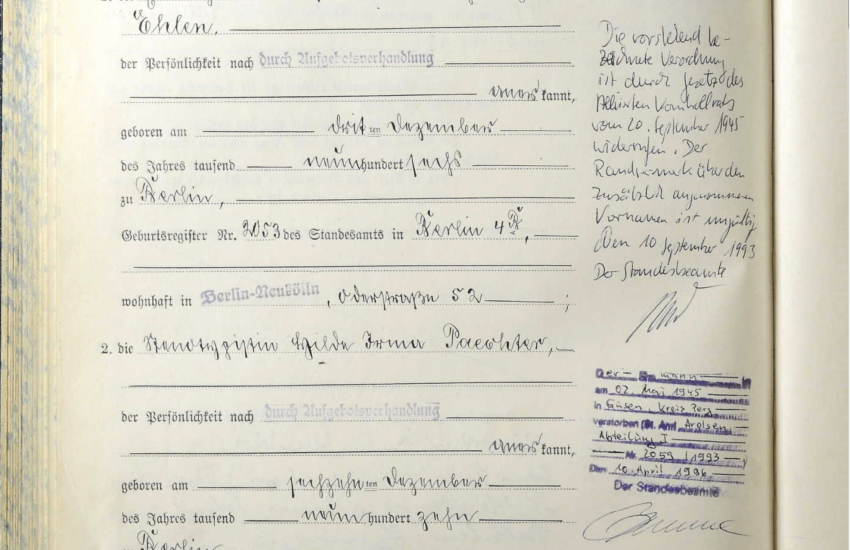 Ehlen,
der Persönlichkeit nach durch Aufgebotsverhandlung
anerkannt,
geboren am dritten Dezember
des Jahres tausend neunhundert sechs
zu Berlin,
Geburtsregister Nr. 2053 des Standesamts in Berlin 4B,
wohnhaft in Berlin-Neukölln, Oderstraße 52 ;
2. die Stenotypistin Hilde Irma Paechter,
der Persönlichkeit nach durch Aufgebotsverhandlung
anerkannt,
geboren am sechzehnten Dezember
des Jahres tausend neunhundert zehn
zu Berlin
Die vorstehend be-
zeichnete Verordnung
ist durch Gesetz des
Alliierten Kontrollrats
vom 20. September 1945
widerrufen. Der
Randvermerk über den
zusätzlich angenommenen
Vornamen ist ungültig
Den 10 September 1993
Der Standesbeamte
Der Ehemann
am 02. Mai 1945
in Güsen, Kreis
verstorben (St. Amt Arolsen,
Abteilung I
Nr. 2059 / 1993 )
Den 10. April 1996
Der Standesbeamte